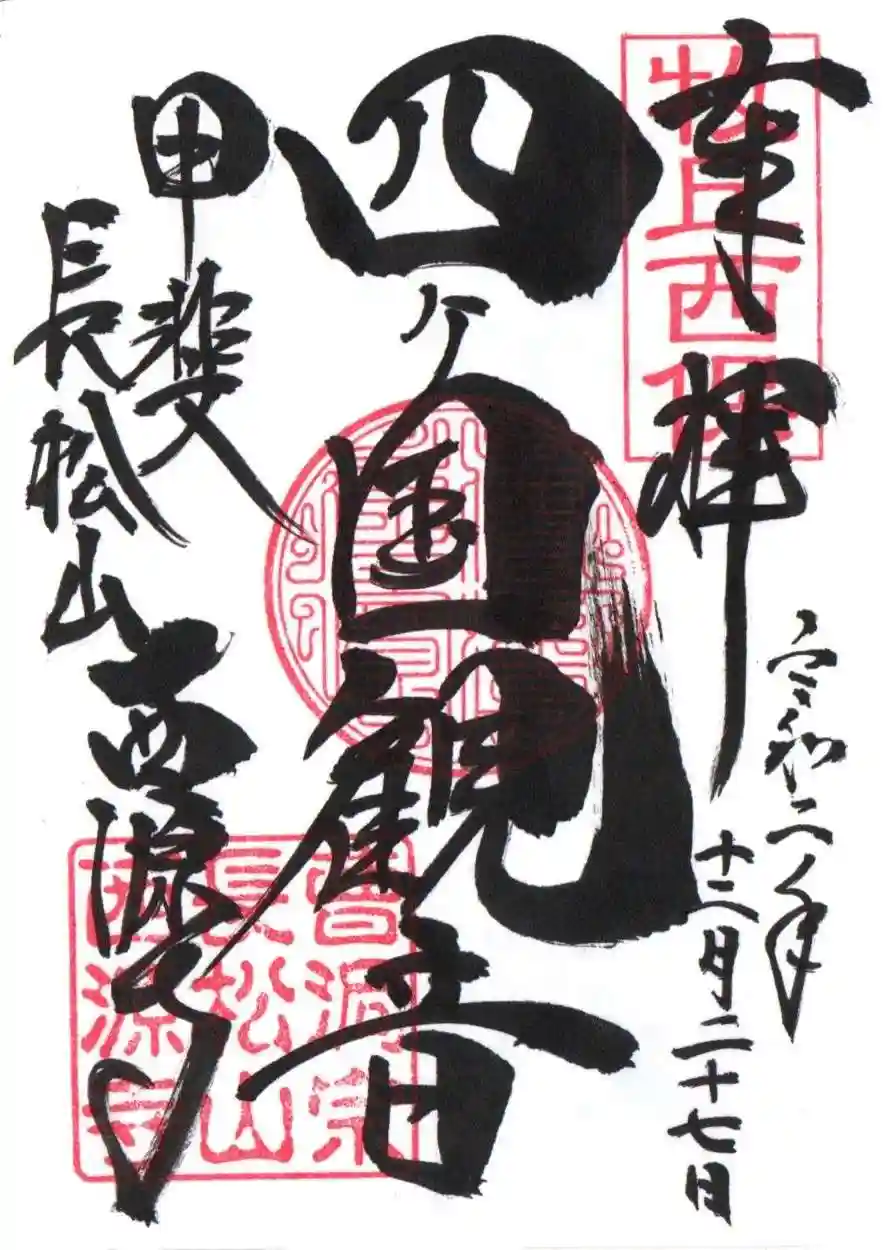 奉拝
牧丘西保
令和二年
十二月二十七日
四ヶ国観音
甲斐
長松山
西源寺
曹洞宗
長松山
西源寺